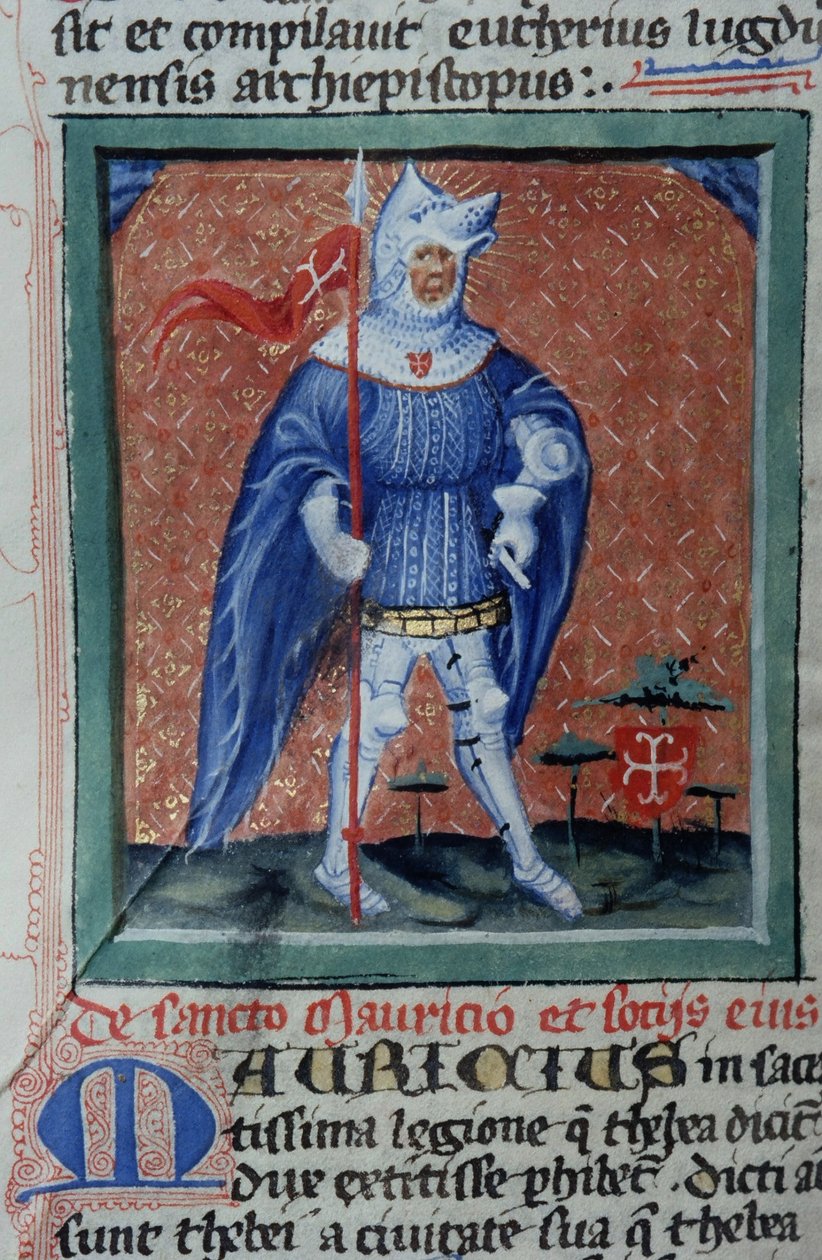 sit et compilavit eutherius lugdu
nensis archiepiscopus:.
De sancto Mauricio et sociis eius
MAURICIUS in sacra
tissima legione q̄ thebea dicit̄
dux extitisse phibet̄. dicti au
sunt thebei a civitate sua q̄ thebea